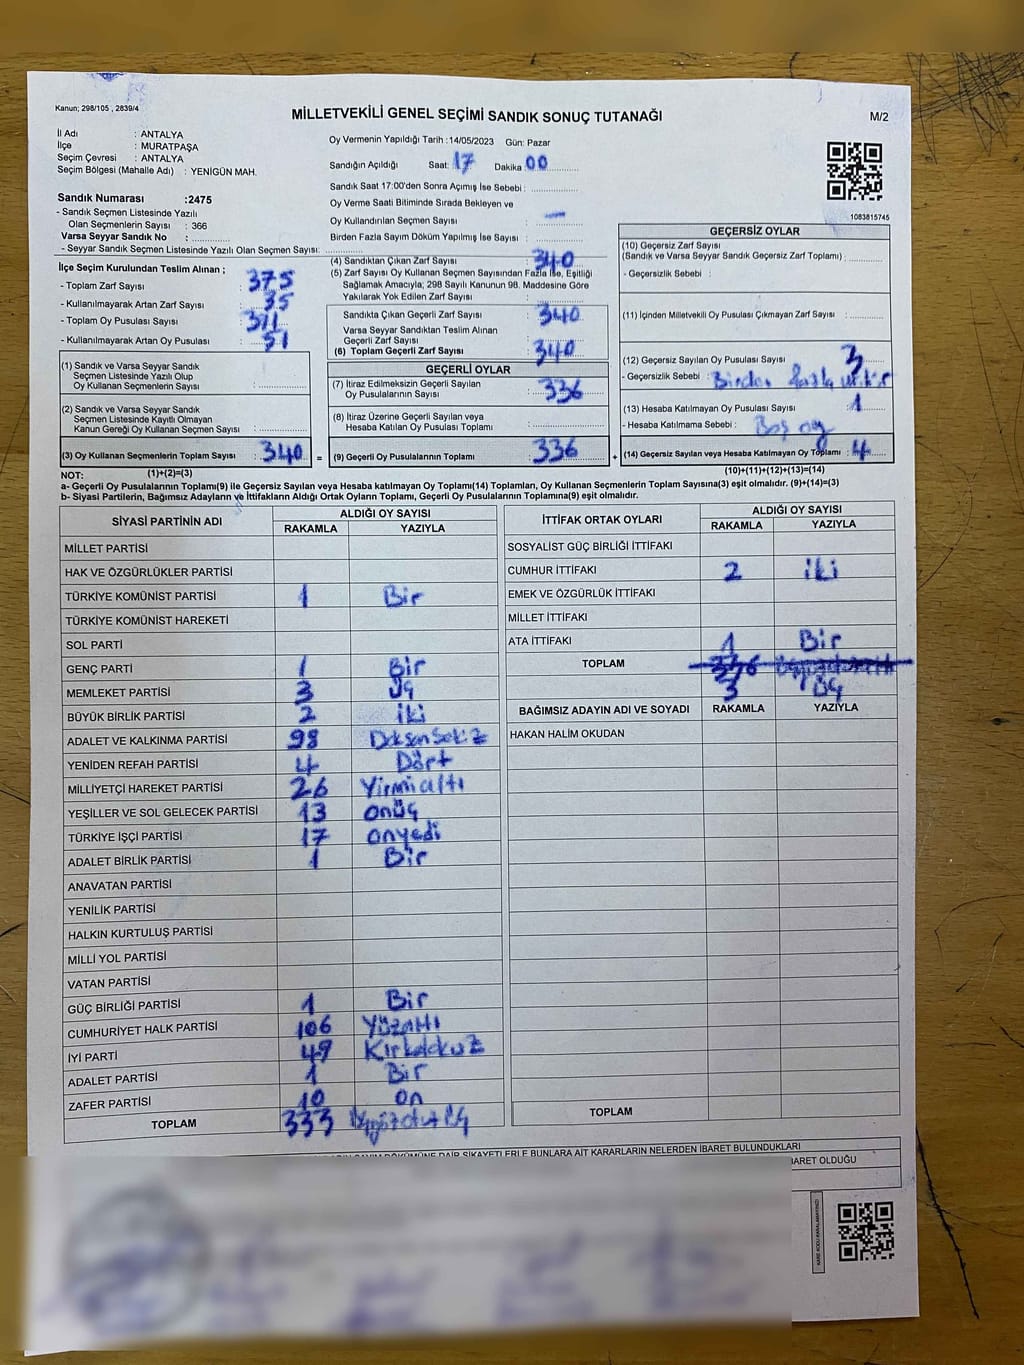 Kanun; 298/105 , 2839/4
MİLLETVEKİLİ GENEL SEÇİMİ SANDIK SONUÇ TUTANAĞI
M/2
İl Adı : ANTALYA
İlçe : MURATPAŞA
Seçim Çevresi : ANTALYA
Seçim Bölgesi (Mahalle Adı) : YENİGÜN MAH.
Oy Vermenin Yapıldığı Tarih :14/05/2023 Gün: Pazar
Sandığın Açıldığı Saat: 17 Dakika 00
Sandık Saat 17:00'den Sonra Açımış İse Sebebi :
Oy Verme Saati Bitiminde Sırada Bekleyen ve
Oy Kullandırılan Seçmen Sayısı : —
Birden Fazla Sayım Döküm Yapılmış İse Sayısı :
1083815745
Sandık Numarası :2475
- Sandık Seçmen Listesinde Yazılı
Olan Seçmenlerin Sayısı : 366
Varsa Seyyar Sandık No :
- Seyyar Sandık Seçmen Listesinde Yazılı Olan Seçmen Sayısı:
İlçe Seçim Kurulundan Teslim Alınan ;
- Toplam Zarf Sayısı : 375
- Kullanılmayarak Artan Zarf Sayısı : 35
- Toplam Oy Pusulası Sayısı :
- Kullanılmayarak Artan Oy Pusulası :
(1) Sandık ve Varsa Seyyar Sandık
Seçmen Listesinde Yazılı Olup
Oy Kullanan Seçmenlerin Sayısı :
(2) Sandık ve Varsa Seyyar Sandık
Seçmen Listesinde Kayıtlı Olmayan
Kanun Gereği Oy Kullanan Seçmen Sayısı :
(3) Oy Kullanan Seçmenlerin Toplam Sayısı : 340
(1)+(2)=(3)
(4) Sandıktan Çıkan Zarf Sayısı : 340
(5) Zarf Sayısı Oy Kullanan Seçmen Sayısından Fazla İse, Eşitliği
Sağlamak Amacıyla; 298 Sayılı Kanunun 98. Maddesine Göre
Yakılarak Yok Edilen Zarf Sayısı :
Sandıkta Çıkan Geçerli Zarf Sayısı : 340
Varsa Seyyar Sandıktan Teslim Alınan
Geçerli Zarf Sayısı :
(6) Toplam Geçerli Zarf Sayısı : 340
GEÇERLİ OYLAR
(7) İtiraz Edilmeksizin Geçerli Sayılan
Oy Pusulalarının Sayısı : 336
(8) İtiraz Üzerine Geçerli Sayılan veya
Hesaba Katılan Oy Pusulası Toplamı :
= (9) Geçerli Oy Pusulalarının Toplamı : 336 +
GEÇERSİZ OYLAR
(10) Geçersiz Zarf Sayısı
(Sandık ve Varsa Seyyar Sandık Geçersiz Zarf Toplamı) :
- Geçersizlik Sebebi :
(11) İçinden Milletvekili Oy Pusulası Çıkmayan Zarf Sayısı :
(12) Geçersiz Sayılan Oy Pusulası Sayısı : 3
- Geçersizlik Sebebi : Birden fazla
(13) Hesaba Katılmayan Oy Pusulası Sayısı : 1
- Hesaba Katılmama Sebebi : Boş oy
(14) Geçersiz Sayılan veya Hesaba Katılmayan Oy Toplamı : 4
(10)+(11)+(12)+(13)=(14)
NOT:
a- Geçerli Oy Pusulalarının Toplamı(9) ile Geçersiz Sayılan veya Hesaba katılmayan Oy Toplamı(14) Toplamları, Oy Kullanan Seçmenlerin Toplam Sayısına(3) eşit olmalıdır. (9)+(14)=(3)
b- Siyasi Partilerin, Bağımsız Adayların ve İttifakların Aldığı Ortak Oyların Toplamı, Geçerli Oy Pusulalarının Toplamına(9) eşit olmalıdır.
SİYASİ PARTİNİN ADI ALDIĞI OY SAYISI
RAKAMLA YAZIYLA
MİLLET PARTİSİ
HAK VE ÖZGÜRLÜKLER PARTİSİ
TÜRKİYE KOMÜNİST PARTİSİ 1 Bir
TÜRKİYE KOMÜNİST HAREKETİ
SOL PARTİ
GENÇ PARTİ 1 Bir
MEMLEKET PARTİSİ 3 Üç
BÜYÜK BİRLİK PARTİSİ 2 iki
ADALET VE KALKINMA PARTİSİ 98 Doksansekiz
YENİDEN REFAH PARTİSİ 4 Dört
MİLLİYETÇİ HAREKET PARTİSİ 26 Yirmialtı
YEŞİLLER VE SOL GELECEK PARTİSİ 13 onüç
TÜRKİYE İŞÇİ PARTİSİ 17 onyedi
ADALET BİRLİK PARTİSİ 1 Bir
ANAVATAN PARTİSİ
YENİLİK PARTİSİ
HALKIN KURTULUŞ PARTİSİ
MİLLİ YOL PARTİSİ
VATAN PARTİSİ
GÜÇ BİRLİĞİ PARTİSİ 1 Bir
CUMHURİYET HALK PARTİSİ 106 Yüzaltı
İYİ PARTİ 49 Kırkdokuz
ADALET PARTİSİ 1 Bir
ZAFER PARTİSİ 10 on
TOPLAM 333 üçyüzotuzüç
İTTİFAK ORTAK OYLARI ALDIĞI OY SAYISI
RAKAMLA YAZIYLA
SOSYALİST GÜÇ BİRLİĞİ İTTİFAKI
CUMHUR İTTİFAKI 2 iki
EMEK VE ÖZGÜRLÜK İTTİFAKI
MİLLET İTTİFAKI
ATA İTTİFAKI 1 Bir
TOPLAM 336
3 Üç
BAĞIMSIZ ADAYIN ADI VE SOYADI RAKAMLA YAZIYLA
HAKAN HALİM OKUDAN
TOPLAM
SAYIM DÖKÜMÜNE DAİR ŞİKAYETLERLE BUNLARA AİT KARARLARIN NELERDEN İBARET BULUNDUKLARI
BARET OLDUĞU
KARE KODU KARALAMAYINIZ!